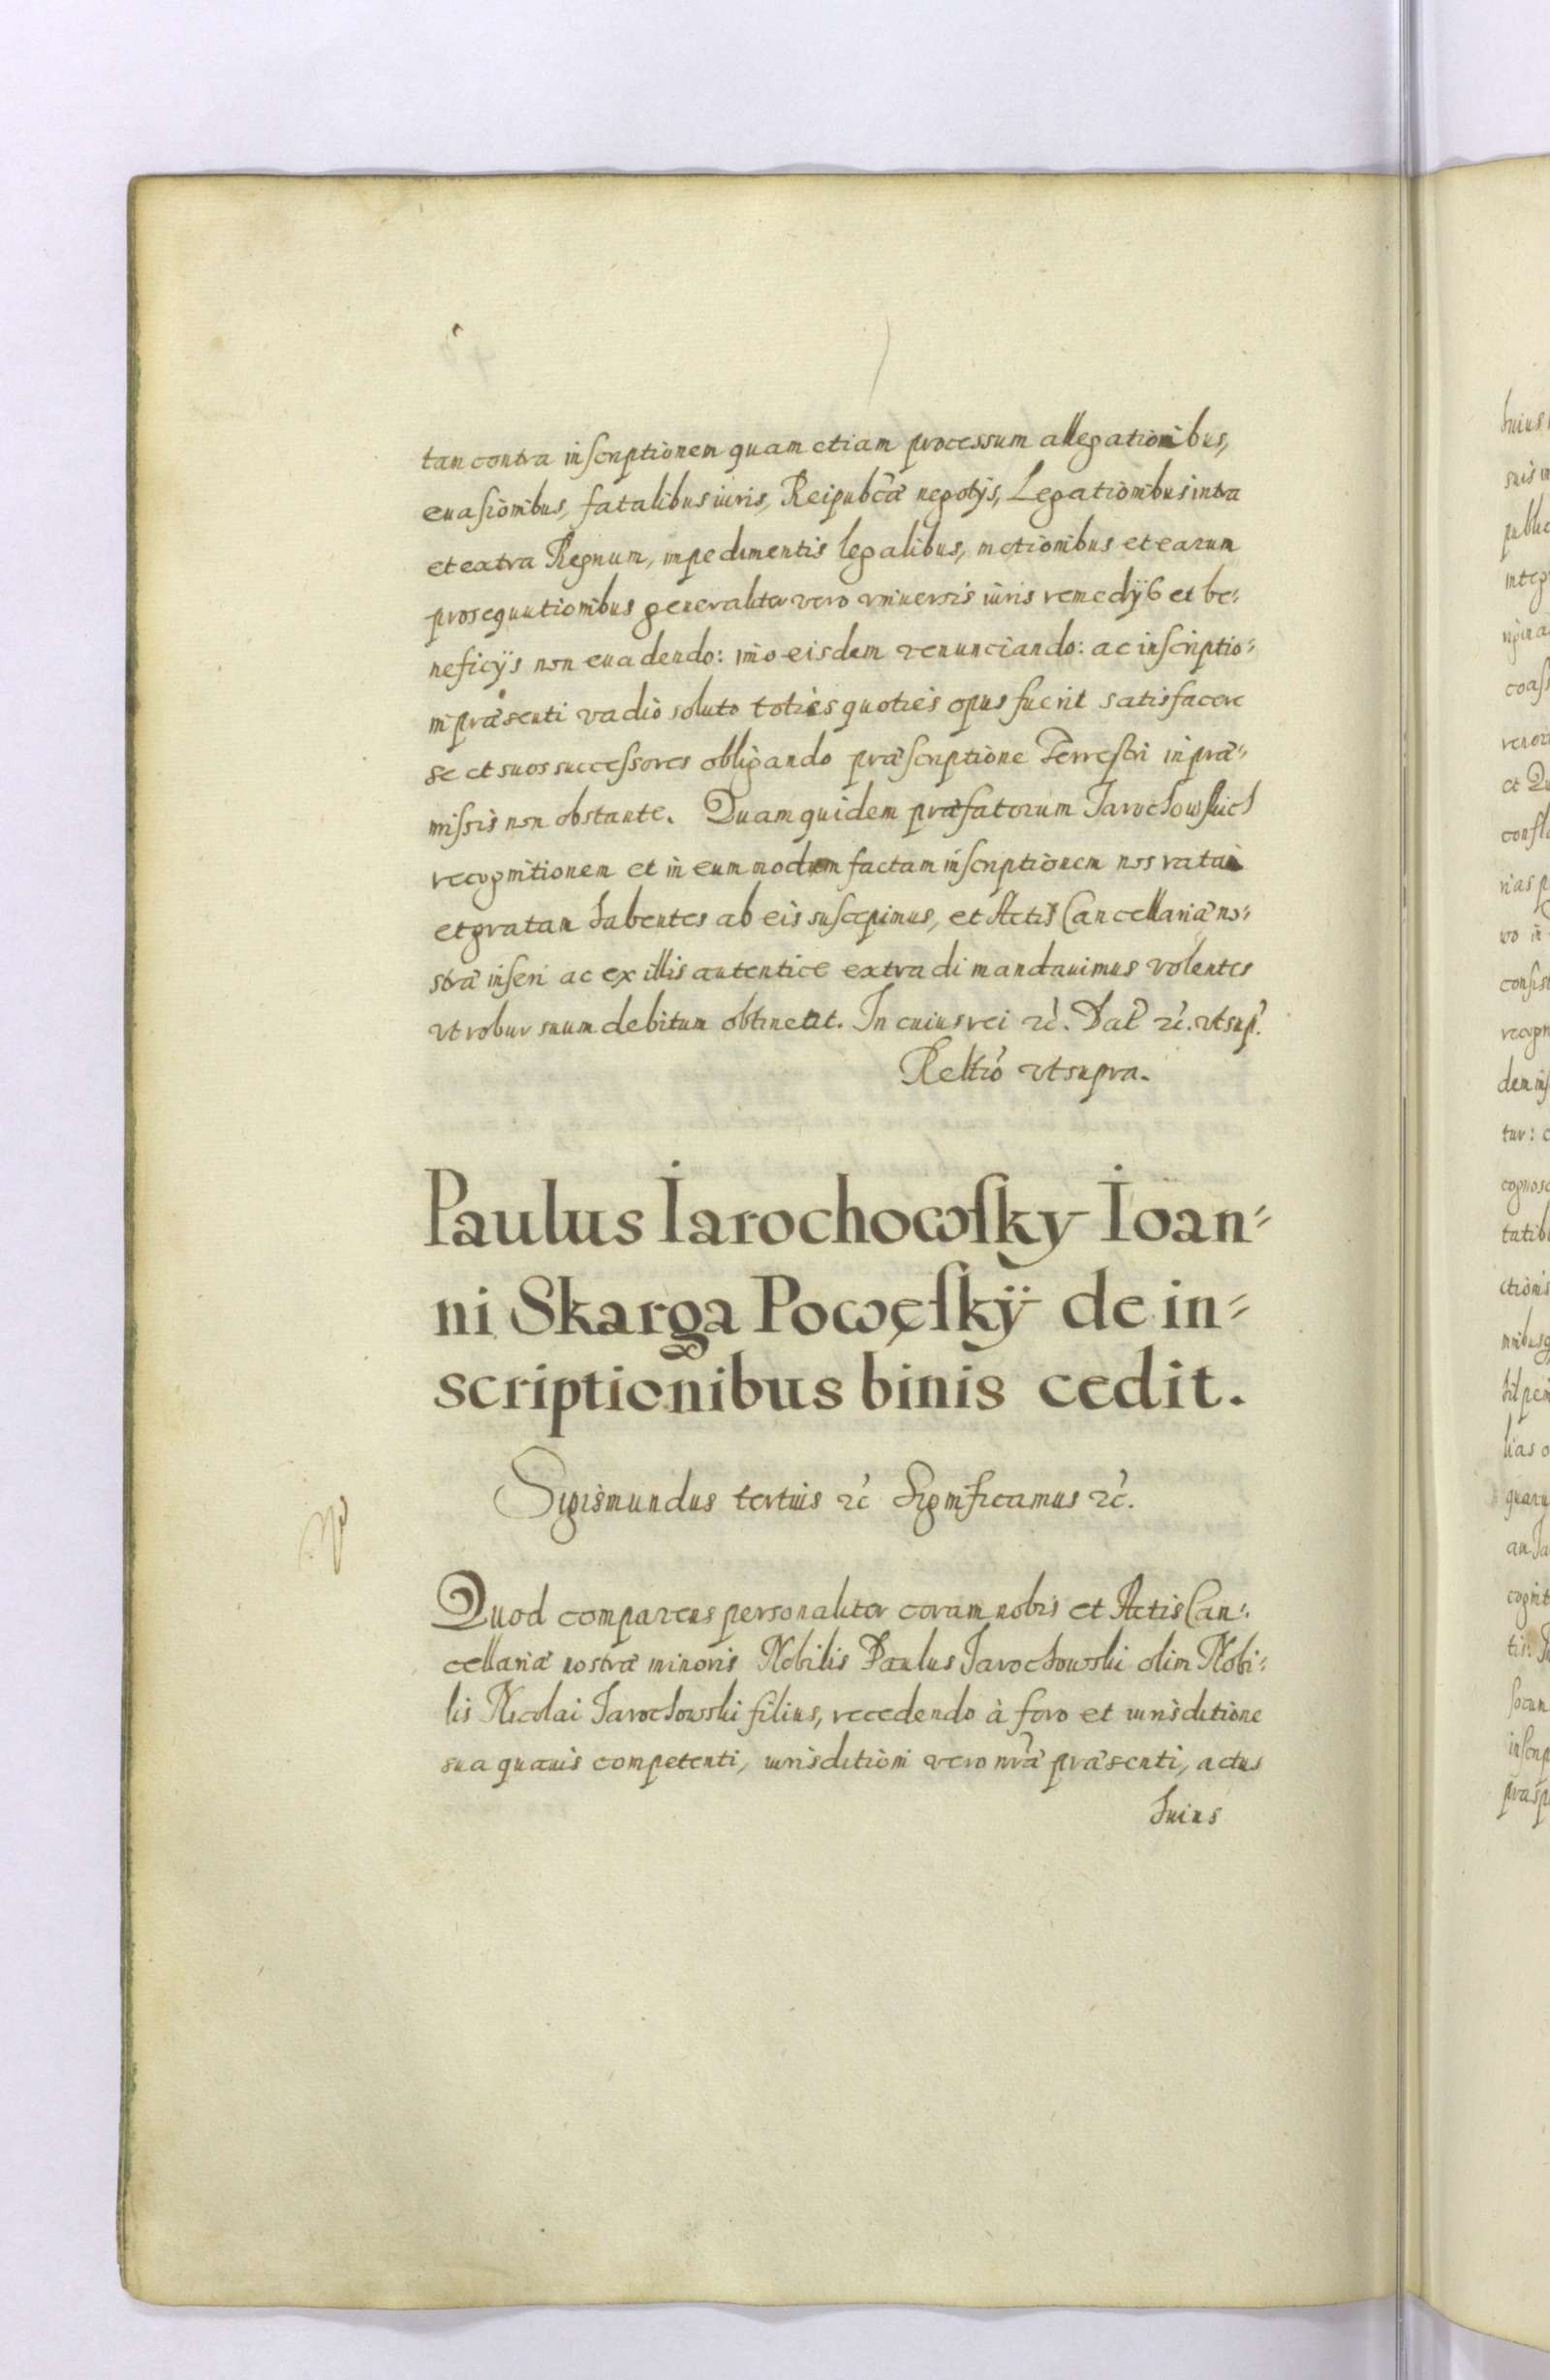 tam contra inscriptionem quam etiam processum allegationibus,
euasionibus, fatalibus iuris, Reipubcæ negotÿs, Legationibus intra
et extra Regnum, impedimentis legalibus, motionibus et earum
prosequutionibus generaliter vero vniuersis iuris remedÿs et be-
neficÿs non euadendo: imo eisdem renunciando: ac inscriptio-
ni præsenti vadio soluto toties quoties opus fuerit satisfacere
se et suos successores obligando præscriptione Terrestri in præ-
missis non obstante. Quam quidem præfatorum Jarochowskich
recognitionem et in eum modum factam inscriptionem nos ratam
et gratam habentes ab eis suscepimus, et Actis Cancellariæ no-
stræ inseri ac ex illis autentice extradi mandauimus volentes
vt robur suum debitum obtineat. In cuius rei &c. Dat &c. vt sup.
Reltio vt supra.
Paulus Iarochowsky Ioan-
ni Skarga Powęskÿ de in-
scriptionibus binis cedit.
Sigismundus tertius &c Significamus &c.
Quod comparens personaliter coram nobis et Actis Can-
cellariæ nostræ minoris Nobilis Paulus Jarochowski olim Nobi-
lis Nicolai Jarochowski filius, recedendo à foro et iurisditione
sua quauis competenti, iurisditioni vero nræ præsenti, actus
huius